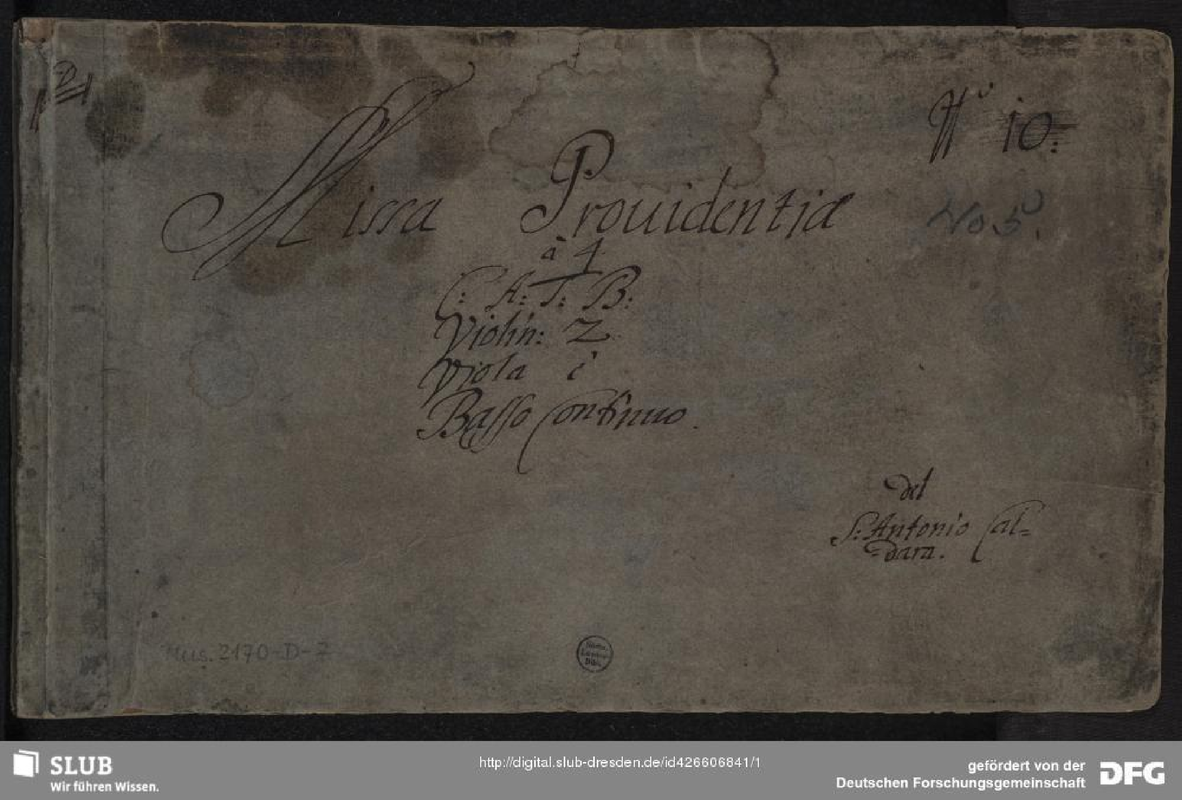 No 10:
No. 5
Missa Prouidentiæ
à 4
C: A: T: B:
Violin: 2
Viola è
Basso Continuo.
del
S: Antonio Cal=
=dara.
Mus. 2170-D-7
SLUB
Wir führen Wissen.
http://digital.slub-dresden.de/id426606841/1
gefördert von der
Deutschen Forschungsgemeinschaft
DFG